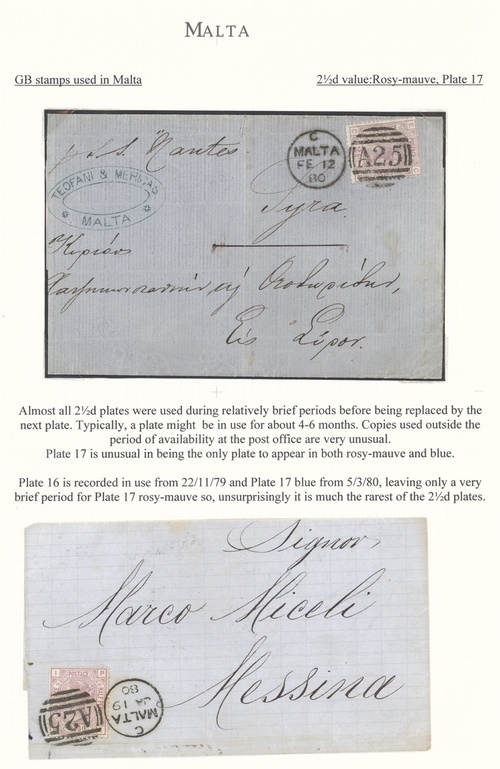 MALTA
GB stamps used in Malta
2½d value:Rosy-mauve, Plate 17
p. S.S. Nantes
C
MALTA
FE 12
80
A25
TEOFANI &
MALTA
Syra.
Κυρίους
Εἰς Σύρον.
Almost all 2½d plates were used during relatively brief periods before being replaced by the
next plate. Typically, a plate might be in use for about 4-6 months. Copies used outside the
period of availability at the post office are very unusual.
Plate 17 is unusual in being the only plate to appear in both rosy-mauve and blue.
Plate 16 is recorded in use from 22/11/79 and Plate 17 blue from 5/3/80, leaving only a very
brief period for Plate 17 rosy-mauve so, unsurprisingly it is much the rarest of the 2½d plates.
Signor
Marco Miceli
Messina
POSTAGE
A25
C
MALTA
JA 19
80